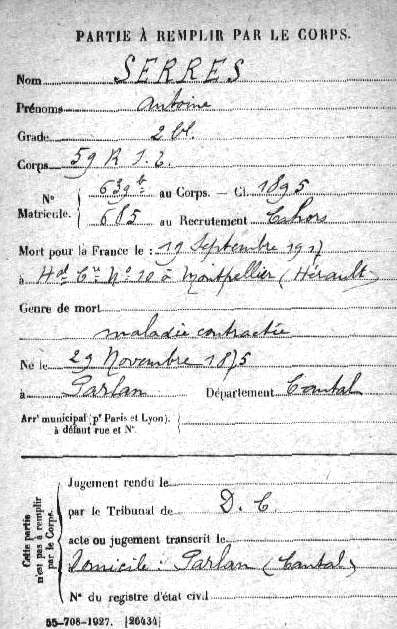 PARTIE À REMPLIR PAR LE CORPS.
Nom SERRES
Prénoms Antoine
Grade 2 Cl.
Corps 59 R I T
N° Matricule. 6391bis au Corps. — Cl. 1895
685 au Recrutement Cahors
Mort pour la France le : 19 Septembre 1917
à Hal Cre No 10 à Montpellier (Hérault)
Genre de mort
maladie contractée
Né le 29 Novembre 1875
à Parlan Département Cantal
Arrt municipal (pr Paris et Lyon),
à défaut rue et N°.
Cette partie n'est pas à remplir par le Corps.
Jugement rendu le
par le Tribunal de D. C.
acte ou jugement transcrit le
Domicile : Parlan (Cantal)
N° du registre d'état civil
55-708-1927. [26434]